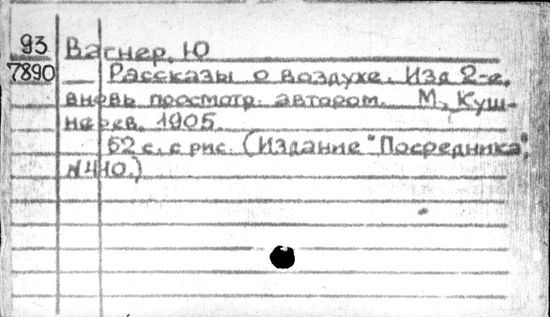 93 Вагнер, Ю
7890 Рассказы о воздухе. Изд 2-е,
вновь просмотр. автором. М., Куш-
нерев. 1905.
52 с. с рис. (Издание "Посредника",
№410.)